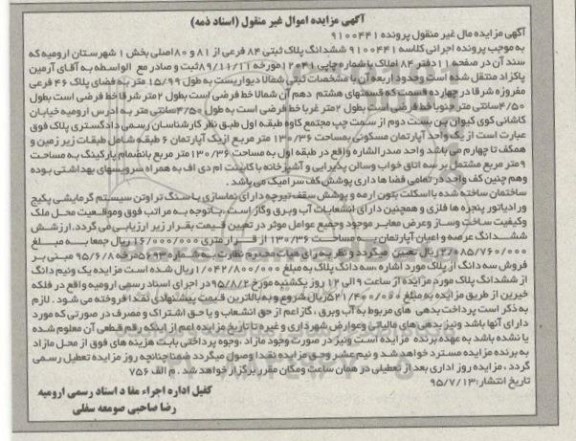 آگهی مزایده اموال غیر منقول (اسناد ذمه)
آگهی مزایده مال غیر منقول پرونده ۹۱۰۰۴۴۱
به موجب پرونده اجرائی کلاسه ۹۱۰۰۴۴۱ ششدانگ پلاک ثبتی ۸۴ فرعی از ۸۱ و ۸۰ اصلی بخش ۱ شهرستان ارومیه که
سند آن در صفحه ۱۱ دفتر ۸۴ املاک با شماره چاپی ۱۲۰۴۱ مورخه ۸۹/۱۰/۱۱ ثبت و صادر مع الواسطه به آقای آرمین
پاکزاد منتقل شده است وحدود اربعه آن با مشخصات ثبتی شمالا دیواریست به طول ۱۵/۹۹ متر به فضای پلاک ۴۶ فرعی
مفروزه شرقا در چهارده قسمت که قسمتهای هشتم دهم آن شمالا خط فرضی است بطول ۲ متر شرقا خط فرضی است بطول
۴/۵۰ سانتی متر جنوبا خط فرضی است بطول ۲ متر غربا خط فرضی است به طول ۴/۵۰ سانتی متر به آدرس ارومیه خیابان
کاشانی کوی کیوان بن بست دوم از سمت چپ مجتمع کاوه طبقه اول طبق نظر کارشناسان رسمی دادگستری پلاک فوق
عبارت است از یک واحد آپارتمان مسکونی بمساحت ۱۳۰/۳۶ متر مربع از یک آپارتمان ۶ طبقه شامل طبقات زیر زمین و
همکف تا چهارم می باشد واحد صدر الشاره واقع در طبقه اول به مساحت ۱۳۰/۳۶ متر مربع بانضمام پارکینگ به مساحت
۹ متر مربع مشتمل بر سه اتاق خواب وسالن پذیرایی و آشپزخانه با کابینت ام دی اف به همراه سرویسهای بهداشتی بوده
وهم چنین کف واحد در تمامی فضا ها داری پوشش کف سرامیک می باشد .
ساختمان ساخته شده با اسکلت بتون ارمه و پوشش سقف تیرچه دارای نماسازی با سنگ تراوتن سیستم گرمایشی پکیج
ورادیاتور پنجره ها فلزی و همچنین دارای انشعابات آب وبرق وگاز است . باتوجه به مراتب فوق وموقعیت محل ملک
وکیفیت ساخت وساز وعرض معابر موجود وجمیع عوامل موثر در تعیین قیمت بقرار زیر ارزیابی می گردد. ارزشش
ششدانگ عرصه و اعیان آپارتمان به مساحت ۱۳۰/۳۶ از قرار متری ۱۶/۰۰۰/۰۰۰ ریال جمعا به مبلغ
۲/۰۸۵/۷۶۰/۰۰۰ ریال تعیین میگردد و نظر به رای هیات محترم نظارت به شماره ۵۶۹۳ مورخه ۹۵/۶/۸ مبنی بر
فروش سه دانگ از پلاک مورد اشاره ،سه دانگ پلاک به مبلغ ۱/۰۴۲/۸۰۰/۰۰۰ ریال شده است مزایده یک ونیم دانگ
از ششدانگ پلاک مورد مزایده از ساعت ۹ الی ۱۲ روز یکشنبه مورخ ۹۵/۸/۲ در اجرای اسناد رسمی ارومیه واقع در فلکه
خیرین از طریق مزایده به مبلغ ۵۲۱/۴۰۰/۰۰۰ ریال شروع و به بالاترین قیمت پیشنهادی نقدا فروخته می شود . لازم
به ذکر است پرداخت بدهی های مربوط به آب وبرق ، گاز اعم از حق انشعاب و یا حق اشتراک و مصرف در صورتی که مورد
دارای آنها باشد ونیز بدهی های مالیاتی وعوارض شهرداری و غیره تا تاریخ مزایده اعم از اینکه رقم قطعی آن معلوم شده
یا نشده باشد به عهده برنده مزایده است ونیز در صورت وجود مازاد ،وجوه پرداختی بابت هزینه های فوق از محل مازاد
به برنده مزایده مسترد خواهد شد و نیم عشر وحق مزایده نقدا وصول میگردد ضمنا چنانچه روز مزایده تعطیل رسمی
گردد ، مزایده روز اداری بعد از تعطیلی در همان ساعت ومکان مقرر برگزار خواهد شد . م الف ۷۵۶
تاریخ انتشار: ۹۵/۷/۱۳
کفیل اداره اجراء مفاد اسناد رسمی ارومیه
رضا صاحبی صومعه سفلی